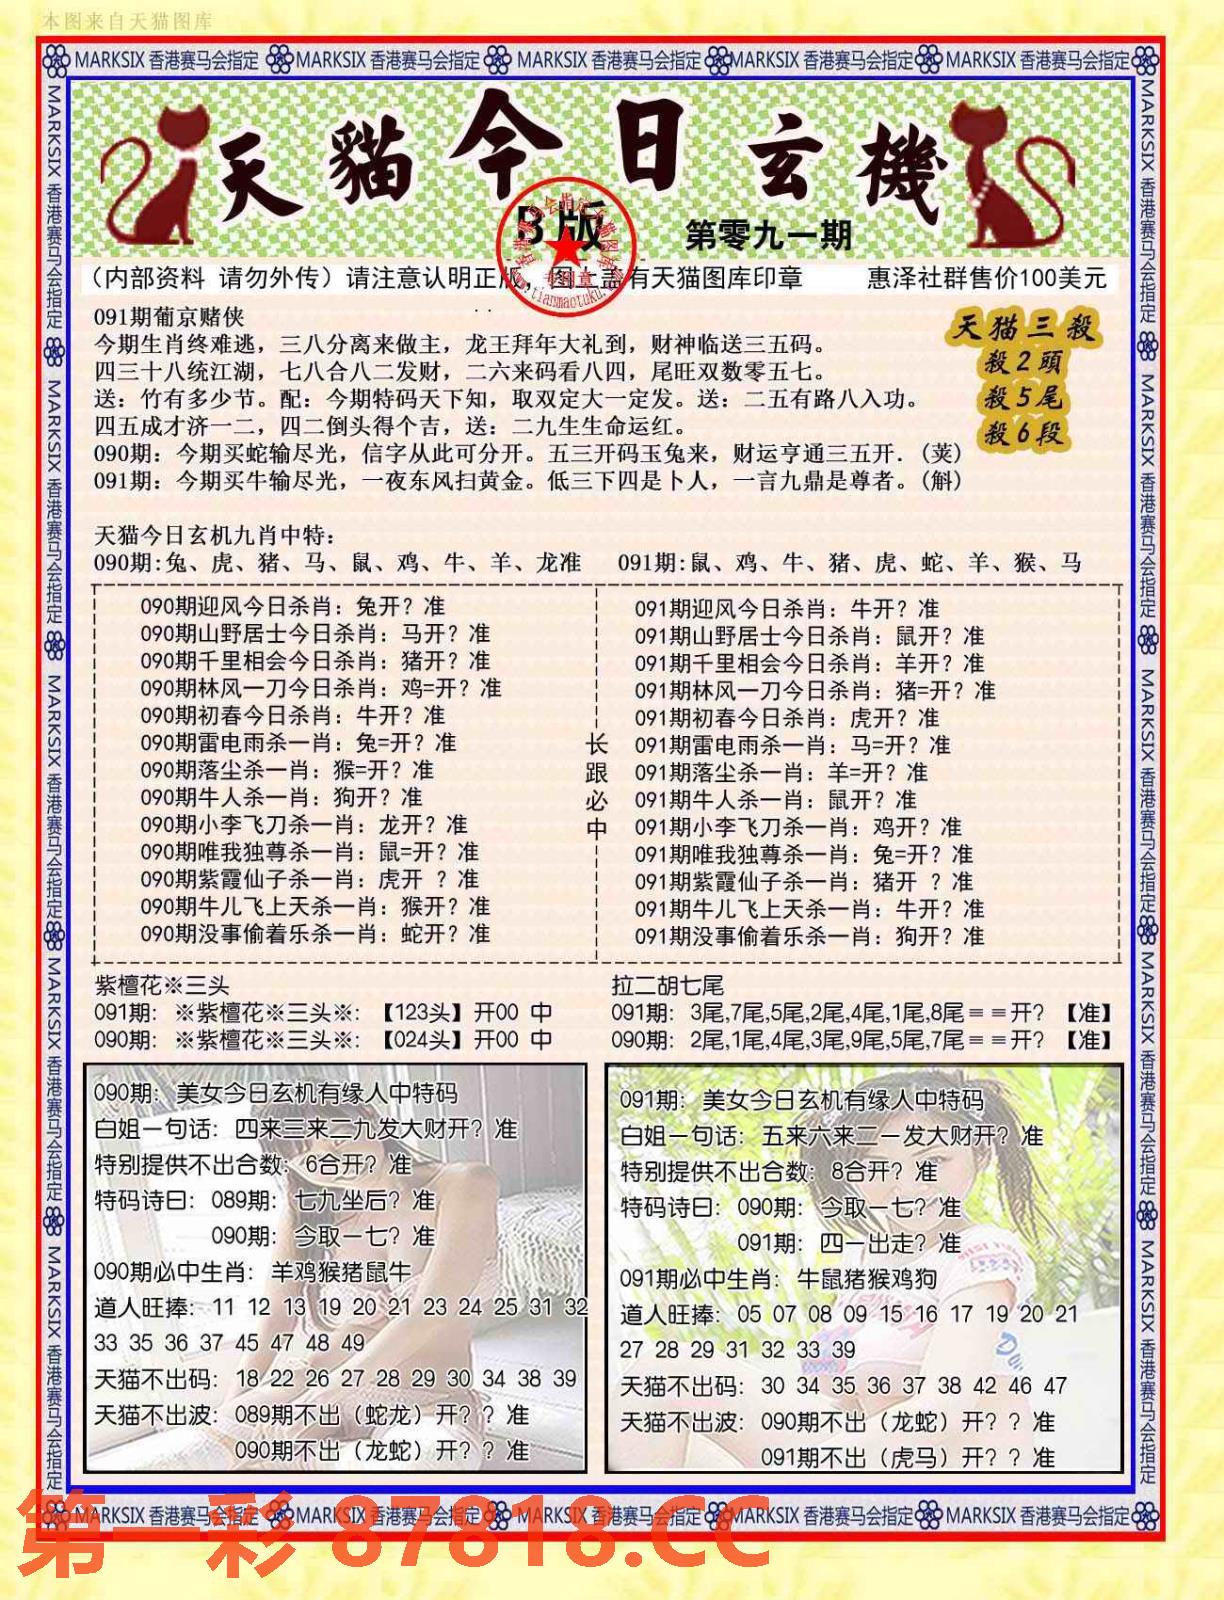 本图来自天猫图库
MARKSIX 香港赛马会指定 MARKSIX 香港赛马会指定 MARKSIX 香港赛马会指定 MARKSIX 香港赛马会指定 MARKSIX 香港赛马会指定
天貓今日玄機
B版
第零九一期
(内部资料 请勿外传) 请注意认明正版, 图上盖有天猫图库印章 惠泽社群售价100美元
091期葡京赌侠
今期生肖终难逃，三八分离来做主，龙王拜年大礼到，财神临送三五码。
四三十八统江湖，七八合八二发财，二六来码看八四，尾旺双数零五七。
送：竹有多少节。配：今期特码天下知，取双定大一定发。送：二五有路八入功。
四五成才济一二，四二倒头得个吉，送：二九生生命运红。
090期：今期买蛇输尽光，信字从此可分开。五三开码玉兔来，财运亨通三五开.（荚）
091期：今期买牛输尽光，一夜东风扫黄金。低三下四是卜人，一言九鼎是尊者。（斛）
天猫三殺
殺2頭
殺5尾
殺6段
天猫今日玄机九肖中特：
090期:兔、虎、猪、马、鼠、鸡、牛、羊、龙准 091期:鼠、鸡、牛、猪、虎、蛇、羊、猴、马
090期迎风今日杀肖：兔开？准
090期山野居士今日杀肖：马开？准
090期千里相会今日杀肖：猪开？准
090期林风一刀今日杀肖：鸡=开？准
090期初春今日杀肖：牛开？准
090期雷电雨杀一肖：兔=开？准
090期落尘杀一肖：猴=开？准
090期牛人杀一肖：狗开？准
090期小李飞刀杀一肖：龙开？准
090期唯我独尊杀一肖：鼠=开？准
090期紫霞仙子杀一肖：虎开 ？准
090期牛儿飞上天杀一肖：猴开？准
090期没事偷着乐杀一肖：蛇开？准
长
跟
必
中
091期迎风今日杀肖：牛开？准
091期山野居士今日杀肖：鼠开？准
091期千里相会今日杀肖：羊开？准
091期林风一刀今日杀肖：猪=开？准
091期初春今日杀肖：虎开？准
091期雷电雨杀一肖：马=开？准
091期落尘杀一肖：羊=开？准
091期牛人杀一肖：鼠开？准
091期小李飞刀杀一肖：鸡开？准
091期唯我独尊杀一肖：兔=开？准
091期紫霞仙子杀一肖：猪开 ？准
091期牛儿飞上天杀一肖：牛开？准
091期没事偷着乐杀一肖：狗开？准
紫檀花※三头
091期：※紫檀花※三头※：【123头】开00 中
090期：※紫檀花※三头※：【024头】开00 中
拉二胡七尾
091期：3尾,7尾,5尾,2尾,4尾,1尾,8尾＝＝开？【准】
090期：2尾,1尾,4尾,3尾,9尾,5尾,7尾＝＝开？【准】
090期：美女今日玄机有缘人中特码
白姐一句话：四来三来二九发大财开？准
特别提供不出合数：6合开？准
特码诗曰：089期：七九坐后？准
090期：今取一七？准
090期必中生肖：羊鸡猴猪鼠牛
道人旺捧：11 12 13 19 20 21 23 24 25 31 32
33 35 36 37 45 47 48 49
天猫不出码：18 22 26 27 28 29 30 34 38 39
天猫不出波：089期不出（蛇龙）开？？准
090期不出（龙蛇）开？？准
091期：美女今日玄机有缘人中特码
白姐一句话：五来六来二一发大财开？准
特别提供不出合数：8合开？准
特码诗曰：090期：今取一七？准
091期：四一出走？准
091期必中生肖：牛鼠猪猴鸡狗
道人旺捧：05 07 08 09 15 16 17 19 20 21
27 28 29 31 32 33 39
天猫不出码：30 34 35 36 37 38 42 46 47
天猫不出波：090期不出（龙蛇）开？？准
091期不出（虎马）开？？准
MARKSIX 香港赛马会指定 MARKSIX 香港赛马会指定 MARKSIX 香港赛马会指定 MARKSIX 香港赛马会指定 MARKSIX 香港赛马会指定
第一彩 87818.CC